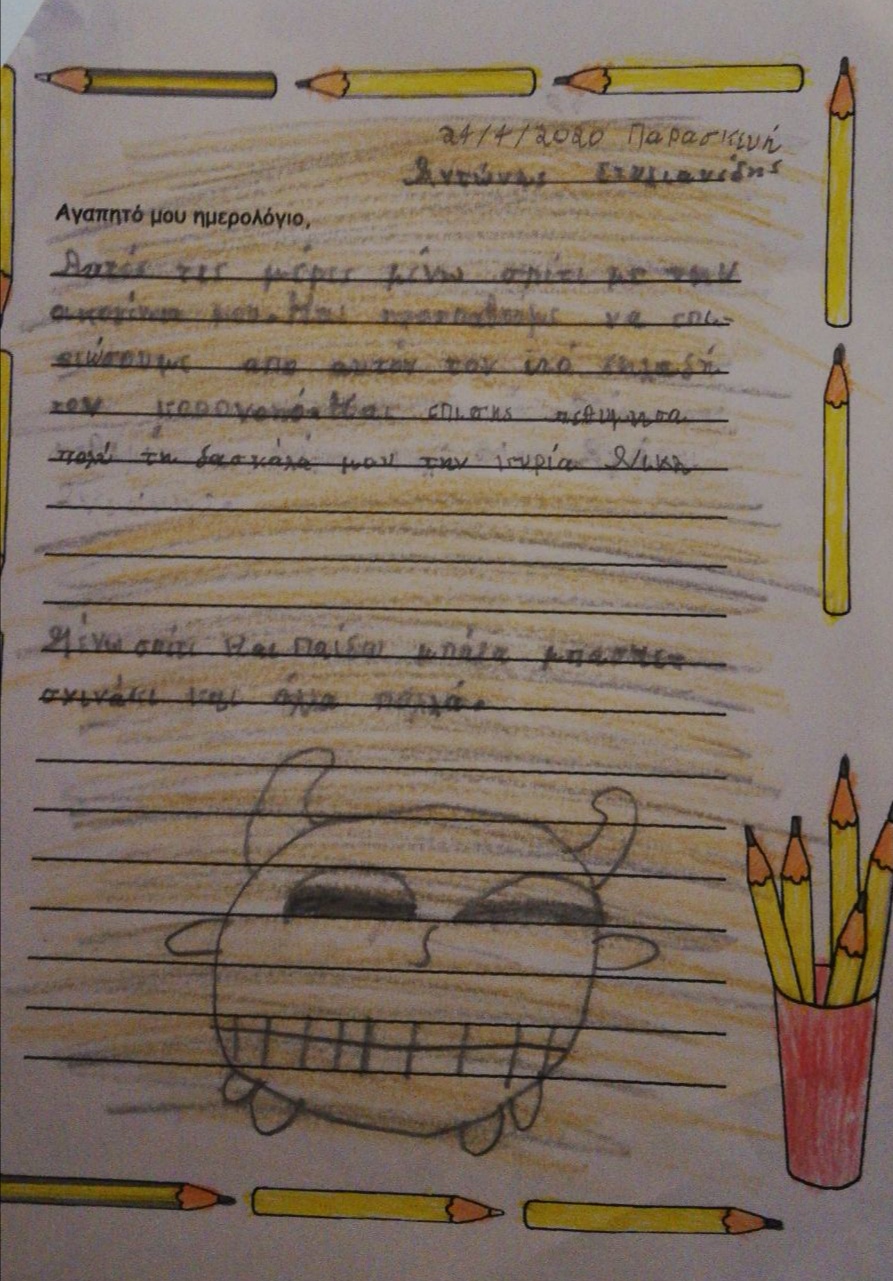 24/4/2020 Παρασκευή
Αντώνης Στυλιανίδης
Αγαπητό μου ημερολόγιο,
Αυτές τις μέρες μένω σπίτι με την
οικογένεια μου. Και προσπαθούμε να επι-
βιώσουμε απο αυτόν τον ιλό δηλαδή
τον κοροναιό. Και επισης πεθύμησα
πολύ τη δασκάλα μου την κυρία Νίκη
Μένω σπίτι και παίζω μπάλα μπασκετ
σχινάκι και άλλα πολλά.